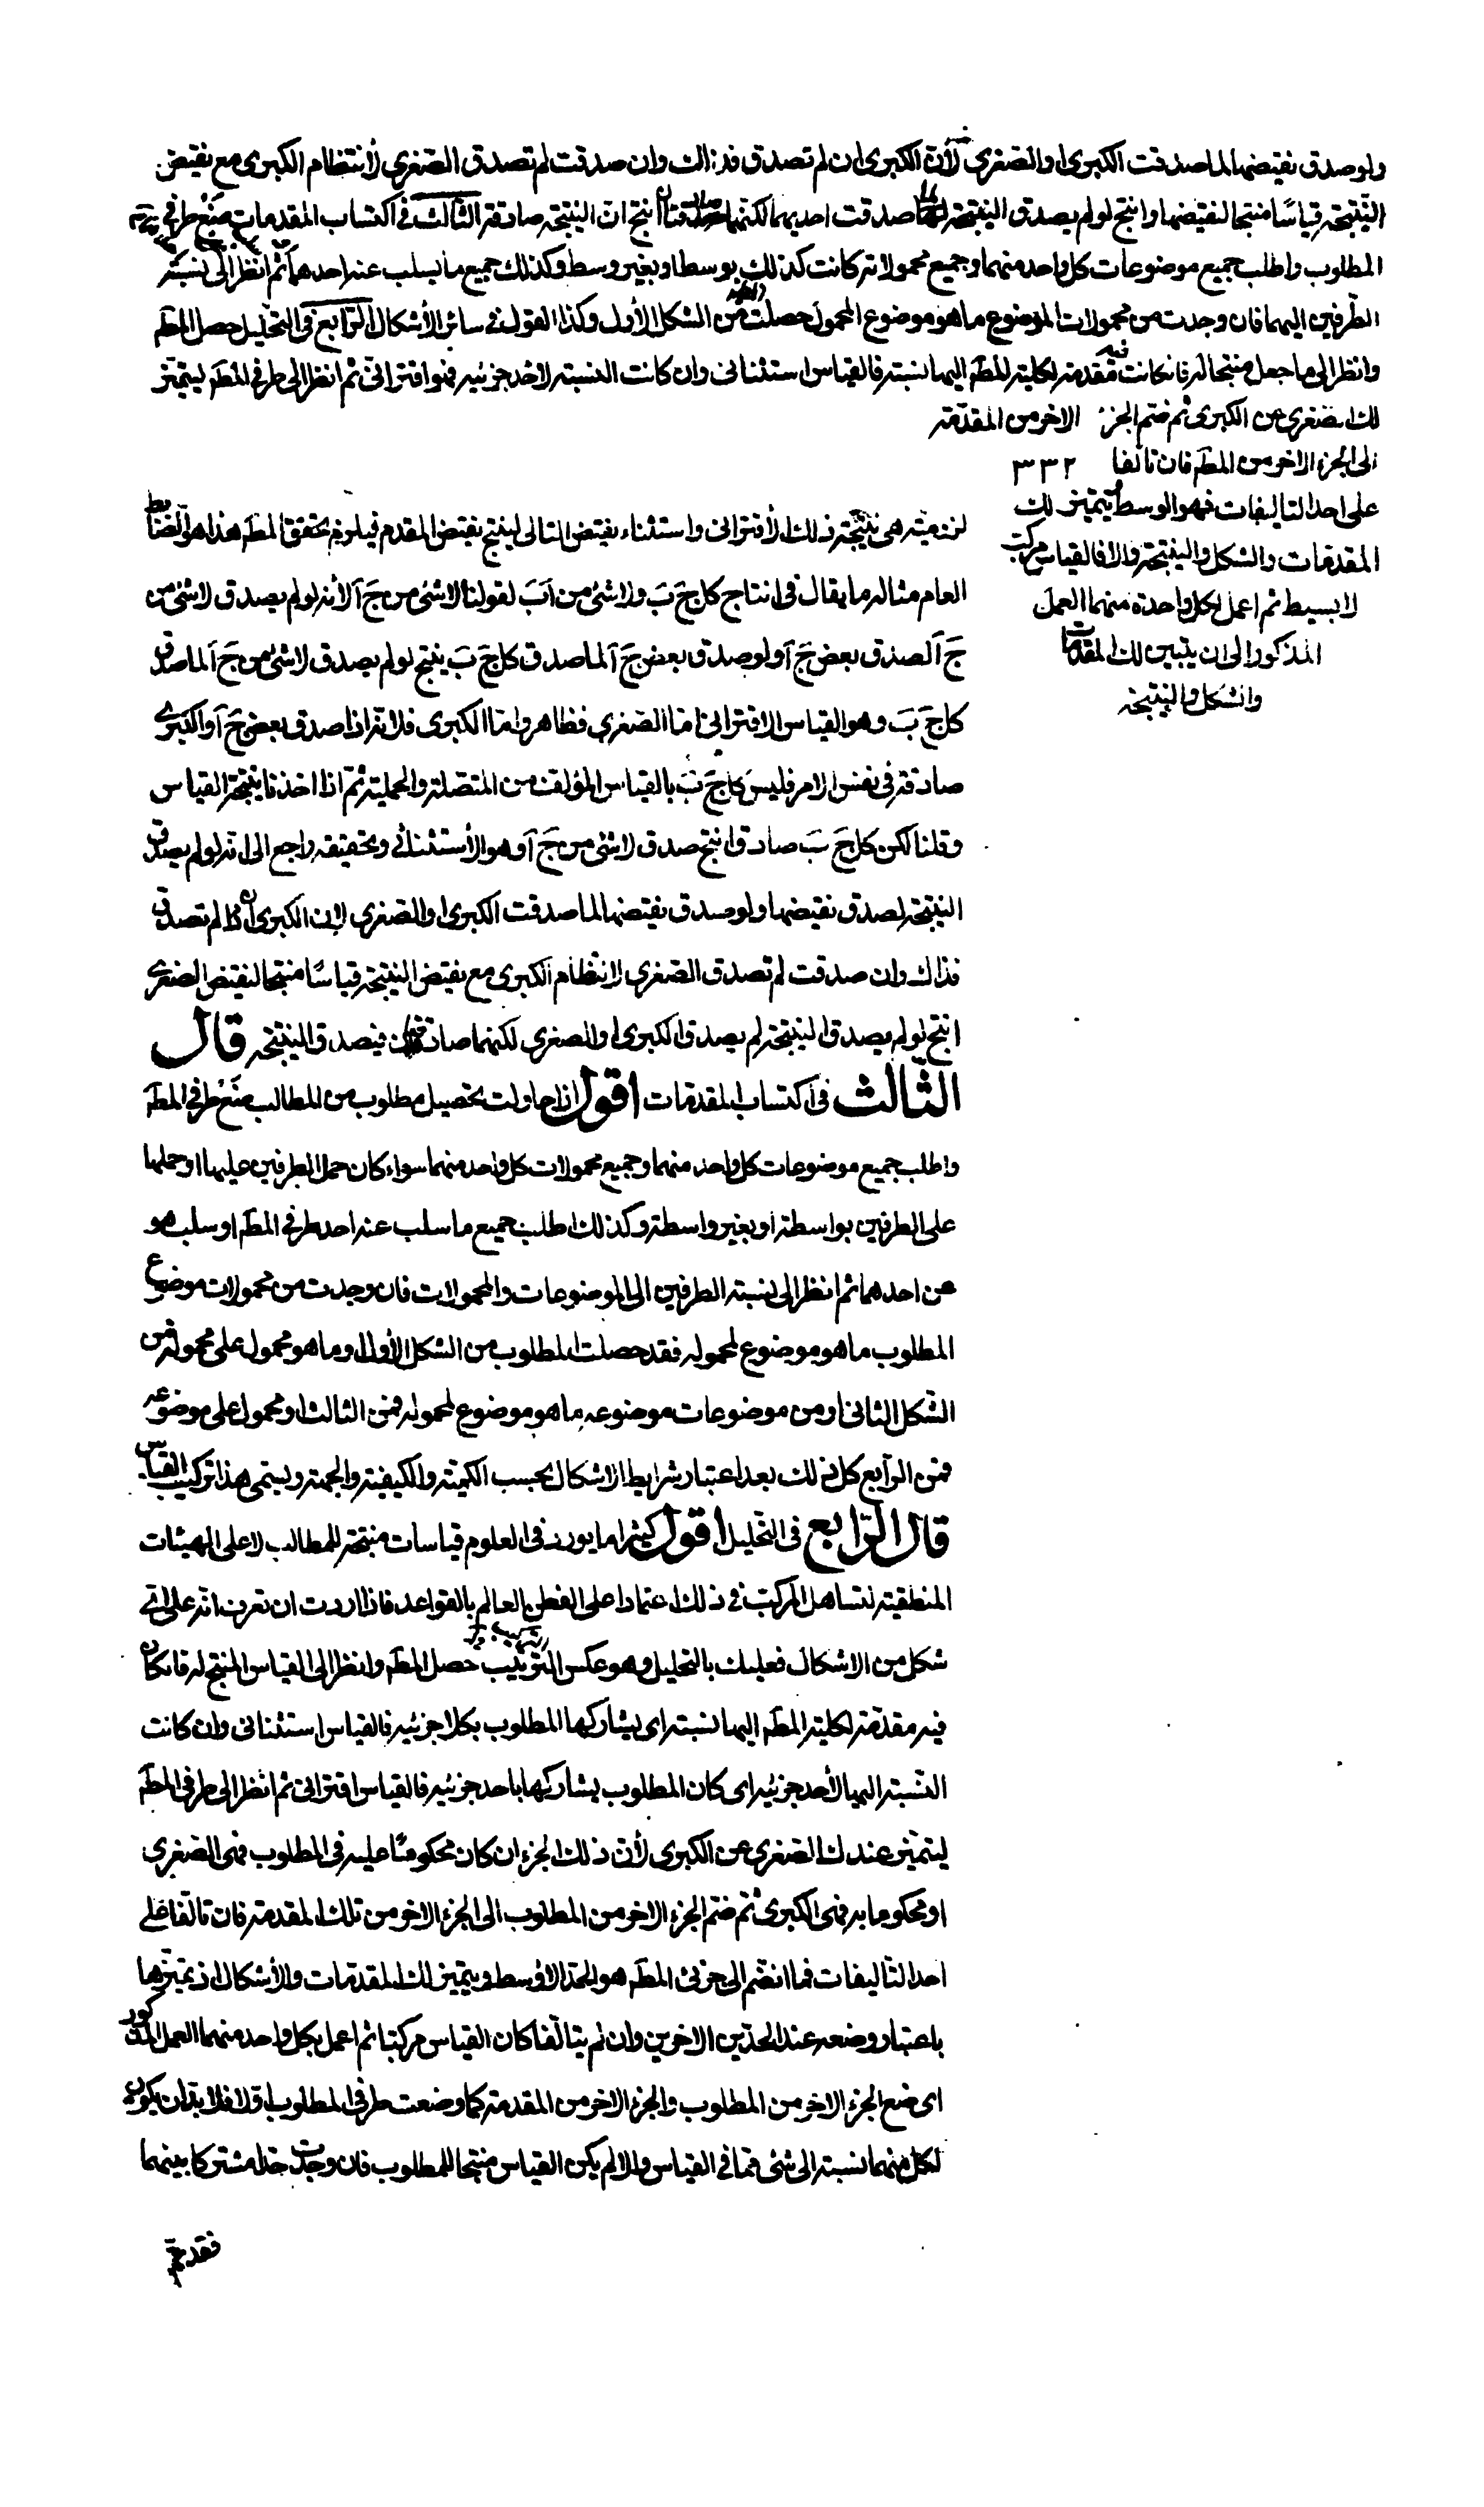 ولو صدق نقيضها لما صدقت الكبرى او الصغرى لأن الكبرى ان لم تصدق فذاك وان صدقت لم تصدق الصغرى لأنتظام الكبرى مع نقيض
النتيجة قياسًا منتجا لنقيضها وانتج لو لم يصدق النتيجة لما صدقت احديهما لكنهما صادقتان انتج ان النتيجة صادقة الثالث في اكتساب المقدمات ضع طرفي
المطلوب واطلب جميع موضوعات كل واحد منهما وجميع محمولاته كانت كذلك بوسط او بغير وسط وكذلك جميع ما يسلب عنه احدهما ثم انظر الى نسبة
الطرفين اليهما فان وجدت من محمولات الموضوع ما هو موضوع المحمول حصلت من الشكل الأول وكذا القول في سائر الأشكال الرابع في التحليل حصل المط
وانظر الى ما جعل منتجا له فانكانت فيه مقدمة لكلية المط اليها نسبة فالقياس استثنائى وان كانت النسبة لاحد جزئيه فهو اقترانى ثم انظر الى طرفي المط ليتميز
لك الصغرى عن الكبرى ثم ضم الجزء الاخر من المقدمة
الى الجزء الاخر من المط فان تألفا ٣٣٢
على احد التاليفات فهو الوسط يتميز لك
المقدمات والشكل والنتيجة والا فالقياس مركب
لا بسيط ثم اعمل لكل واحدة منهما العمل
المذكور الى ان يتبين لك المقدمات
والشكل والنتيجة
لزومية هى نتيجة ذلك الأقترانى واستثناء نقيض التالى لينتج نقيض المقدم فيلزم تحقق المط هذا هو الضابط
العام مثاله ما يقال فى انتاج كل جَ بَ ولا شئ من اَ بَ لقولنا لا شئ من جَ اَ لأنه لو لم يصدق لا شئ من
جَ اَ لصدق بعض جَ اَ ولو صدق بعض جَ اَ لما صدق كل جَ بَ ينتج لو لم يصدق لا شئ من جَ اَ لما صدق
كل جَ بَ وهو القياس الاقترانى اما الصغرى فظاهر واما الكبرى فلانه اذا صدق بعض جَ اَ والكبرى
صادقة فى نفس الامر فليس كل جَ بَ بالقياس المؤلف من المتصلة والحملية ثم اذا اخذنا نتيجة القياس
وقلنا لكن كل جَ بَ صادق انتج صدق لا شئ من جَ اَ وهو الأستثنائى وتحقيقه راجع الى انه لو لم يصدق
النتيجة لصدق نقيضها ولو صدق نقيضها لما صدقت الكبرى او الصغرى لان الكبرى ان لم تصدق
فذاك وان صدقت لم تصدق الصغرى لانتظام الكبرى مع نقيض النتيجة قياسًا منتجا لنقيض الصغرى
انتج لو لم يصدق النتيجة لم يصدق الكبرى او الصغرى لكنهما صادقتان فيصدق النتيجة قال
الثالث فى اكتساب المقدمات اقول اذا حاولت تحصيل مطلوب من المطالب ضع طرفي المط
واطلب جميع موضوعات كل واحد منهما وجميع محمولات كل واحد منهما سواء كان حمل الطرفين عليها او حملها
على الطرفين بواسطة او بغير واسطة وكذلك اطلب جميع ما سلب عنه احد طرفي المط او سلب هو
عن احدهما ثم انظر الى نسبة الطرفين الى الموضوعات والمحمولات فان وجدت من محمولات موضوع
المطلوب ما هو موضوع لمحموله فقد حصلت المطلوب من الشكل الأول او ما هو محمول على محموله فمن
الشكل الثانى او من موضوعات موضوعه ما هو موضوع لمحموله فمن الثالث او محمول على موضوعه
فمن الرابع كل ذلك بعد اعتبار شرايط الاشكال بحسب الكمية والكيفية والجهة ويسمى هذا تركيب القياس
قال الرابع فى التحليل اقول كثيرا ما يورد فى العلوم قياسات منتجة للمطالب لا على الهيئات
المنطقية لتساهل المركب في ذلك اعتمادا على الفطن العالم بالقواعد فاذا اردت ان تعرف انه على اى
شكل من الاشكال فعليك بالتحليل وهو عكس التركيب حصل المط وانظر الى القياس المنتج له فانكان
فيه مقدمة لكلية المط اليها نسبة اى يشاركها المطلوب بكلا جزئيه فالقياس استثنائى وان كانت
النسبة اليها لأحد جزئيه اى كان المطلوب يشاركها باحد جزئيه فالقياس اقترانى ثم انظر الى طرفى المط
ليتميز عندك الصغرى عن الكبرى لأن ذلك الجزء ان كان محكومًا عليه فى المطلوب فهى الصغرى
او محكوما به فهى الكبرى ثم ضم الجزء الاخر من المطلوب الى الجزء الاخر من تلك المقدمة فان تالفا على
احد التأليفات فما انضم الى جزئى المط هو الحد الاوسط ويتميز لك المقدمات والأشكال اذ تميزها
باعتبار وضعه عند الحدين الاخرين وان لم يتالفا كان القياس مركبا ثم اعمل بكل واحد منهما العمل المذكور
اى ضع الجزء الاخر من المطلوب والجزء الاخر من المقدمة كما وضعت طرفى المطلوب اولا فلا بد ان يكون
لكل منهما نسبة الى شئ مّا في القياس والا لم يكن القياس منتجا للمطلوب فان وجدت حدا مشتركا بينهما
فقد